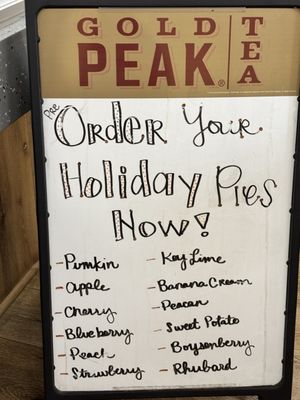 GOLD
PEAK®
TEA
Pre
Order Your
Holiday Pies
Now!
- Pumkin
- Apple
- Cherry
- Blueberry
- Peach
- Strawberry
- Key Lime
- Banana Cream
- Peacan
- Sweet Potato
- Boysenberry
- Rhubard